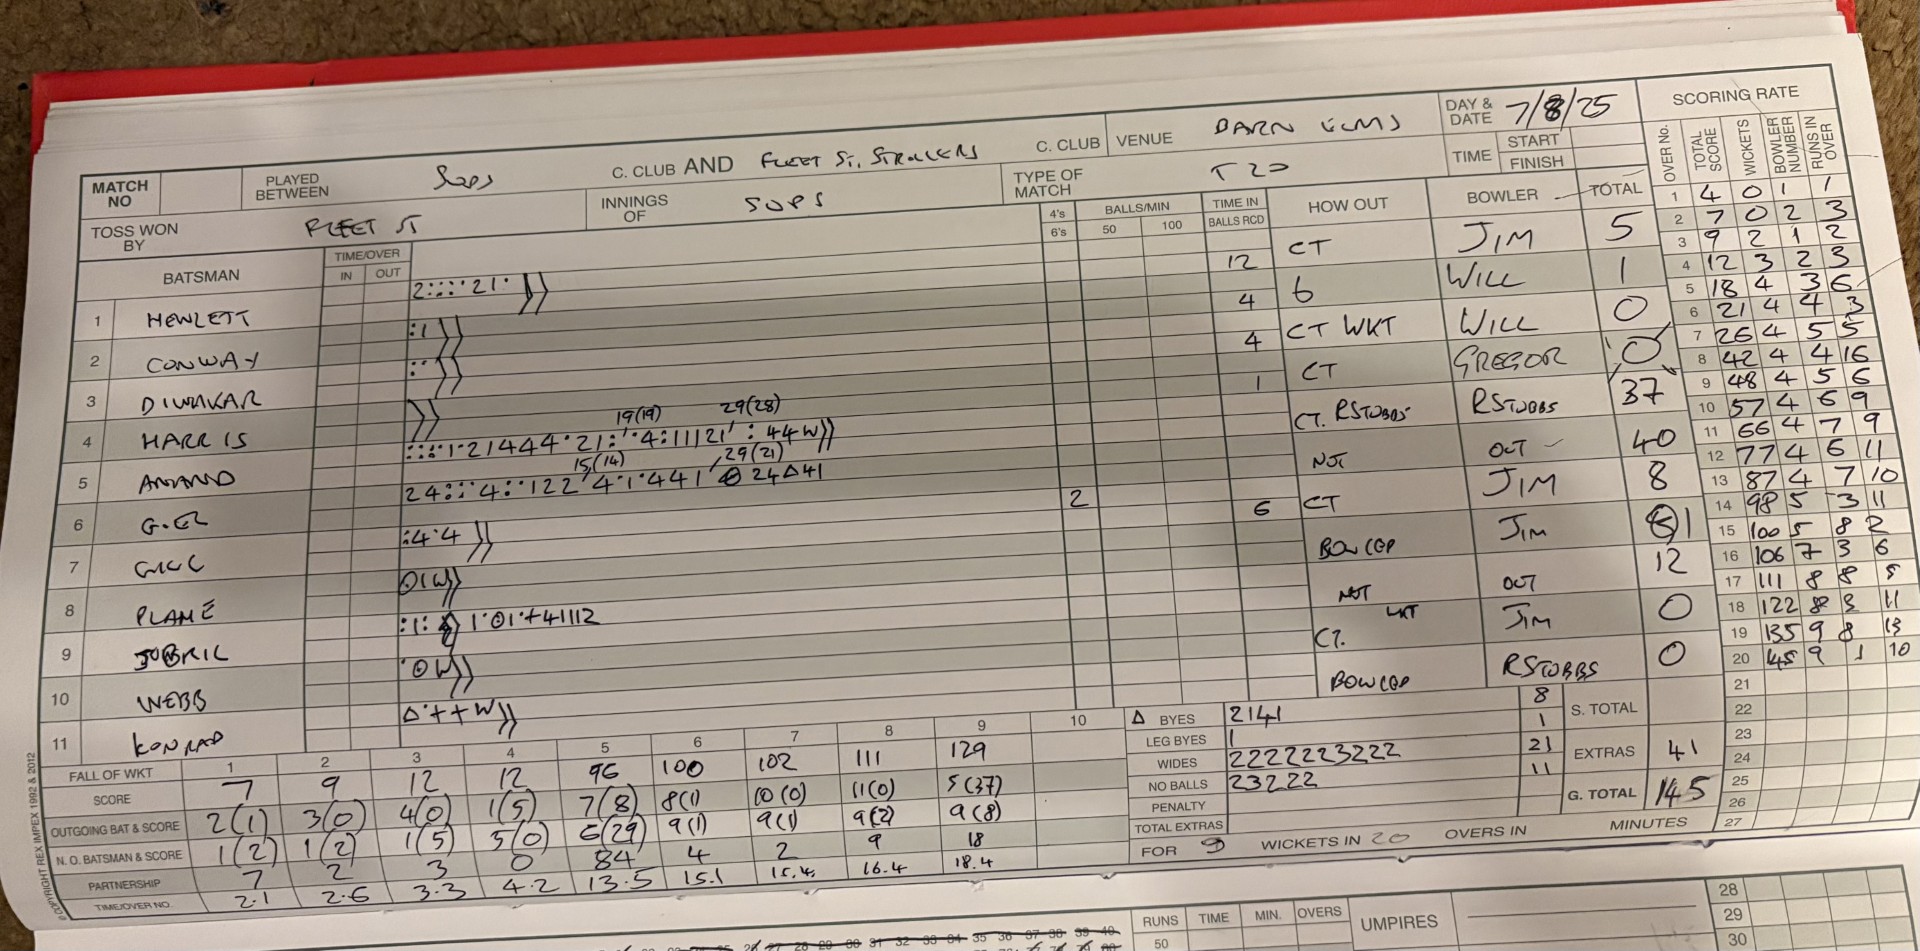 MATCH NO PLAYED BETWEEN Sops C. CLUB AND FLEET St. STROLLERS C. CLUB VENUE BARN ELMS DAY & DATE 7/8/25 SCORING RATE
TOSS WON BY FLEET ST INNINGS OF SOPS TYPE OF MATCH T20 TIME START FINISH
BATSMAN TIME/OVER IN OUT 4's 6's BALLS/MIN 50 100 TIME IN BALLS RCD HOW OUT BOWLER TOTAL
1 HEWLETT 12 CT JIM 5
2 CONWAY 4 b WILL 1
3 DIWAKAR 4 CT WKT WILL 0
4 HARRIS 1 CT GREGOR 0
5 ANAND 19(19) 29(28) CT. RSTUBBS RSTUBBS 37
6 GOEL 15(14) 29(21) NOT OUT 40
7 GILL :4·4 2 6 CT JIM 8
8 PLANE BOWLED JIM 1
9 JOBRIL NOT OUT 12
10 WEBB CT. WKT JIM 0
11 KONRAD BOWLED RSTOBBS 0
FALL OF WKT 1 2 3 4 5 6 7 8 9 10
SCORE 7 9 12 12 96 100 102 111 129
OUTGOING BAT & SCORE 2(1) 3(0) 4(0) 1(5) 7(8) 8(1) 10(0) 11(0) 5(37)
N. O. BATSMAN & SCORE 1(2) 1(2) 1(5) 5(0) 6(29) 9(1) 9(1) 9(2) 9(8)
PARTNERSHIP 7 2 3 0 84 4 2 9 18
TIME/OVER NO. 2.1 2.6 3.3 4.2 13.5 15.1 15.4 16.4 18.4
Δ BYES 2141 8 S. TOTAL
LEG BYES 1 1
WIDES 2222223222 21 EXTRAS 41
NO BALLS 23222 11
PENALTY G. TOTAL 145
TOTAL EXTRAS
FOR 9 WICKETS IN 20 OVERS IN MINUTES
OVER No. TOTAL SCORE WICKETS BOWLER NUMBER RUNS IN OVER
1 4 0 1 1
2 7 0 2 3
3 9 2 1 2
4 12 3 2 3
5 18 4 3 6
6 21 4 4 3
7 26 4 5 5
8 42 4 4 16
9 48 4 5 6
10 57 4 6 9
11 66 4 7 9
12 77 4 6 11
13 87 4 7 10
14 98 5 3 11
15 100 5 8 2
16 106 7 3 6
17 111 8 8 5
18 122 8 3 11
19 135 9 8 13
20 145 9 1 10
21
22
23
24
25
26
27
© COPYRIGHT REX IMPEX 1992 & 2012
RUNS TIME MIN. OVERS UMPIRES
50
28
29
30